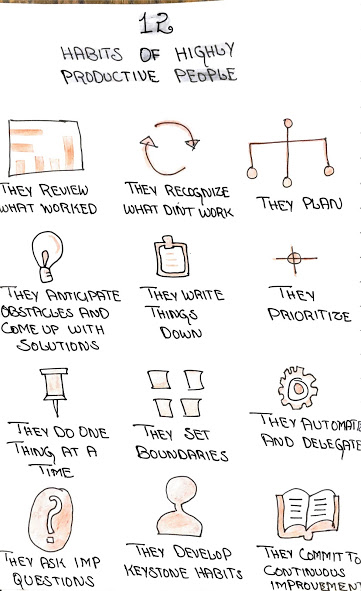 12
HABITS OF HIGHLY
PRODUCTIVE PEOPLE
THEY REVIEW
WHAT WORKED
THEY RECOGNIZE
WHAT DIN'T WORK
THEY PLAN
THEY ANTICIPATE
OBSTACLES AND
COME UP WITH
SOLUTIONS
THEY WRITE
THINGS
DOWN
THEY
PRIORITIZE
THEY DO ONE
THING AT A
TIME
THEY SET
BOUNDARIES
THEY AUTOMATE
AND DELEGATE
THEY ASK IMP
QUESTIONS
THEY DEVELOP
KEYSTONE HABITS
THEY COMMIT TO
CONTINUOUS
IMPROVEMENT